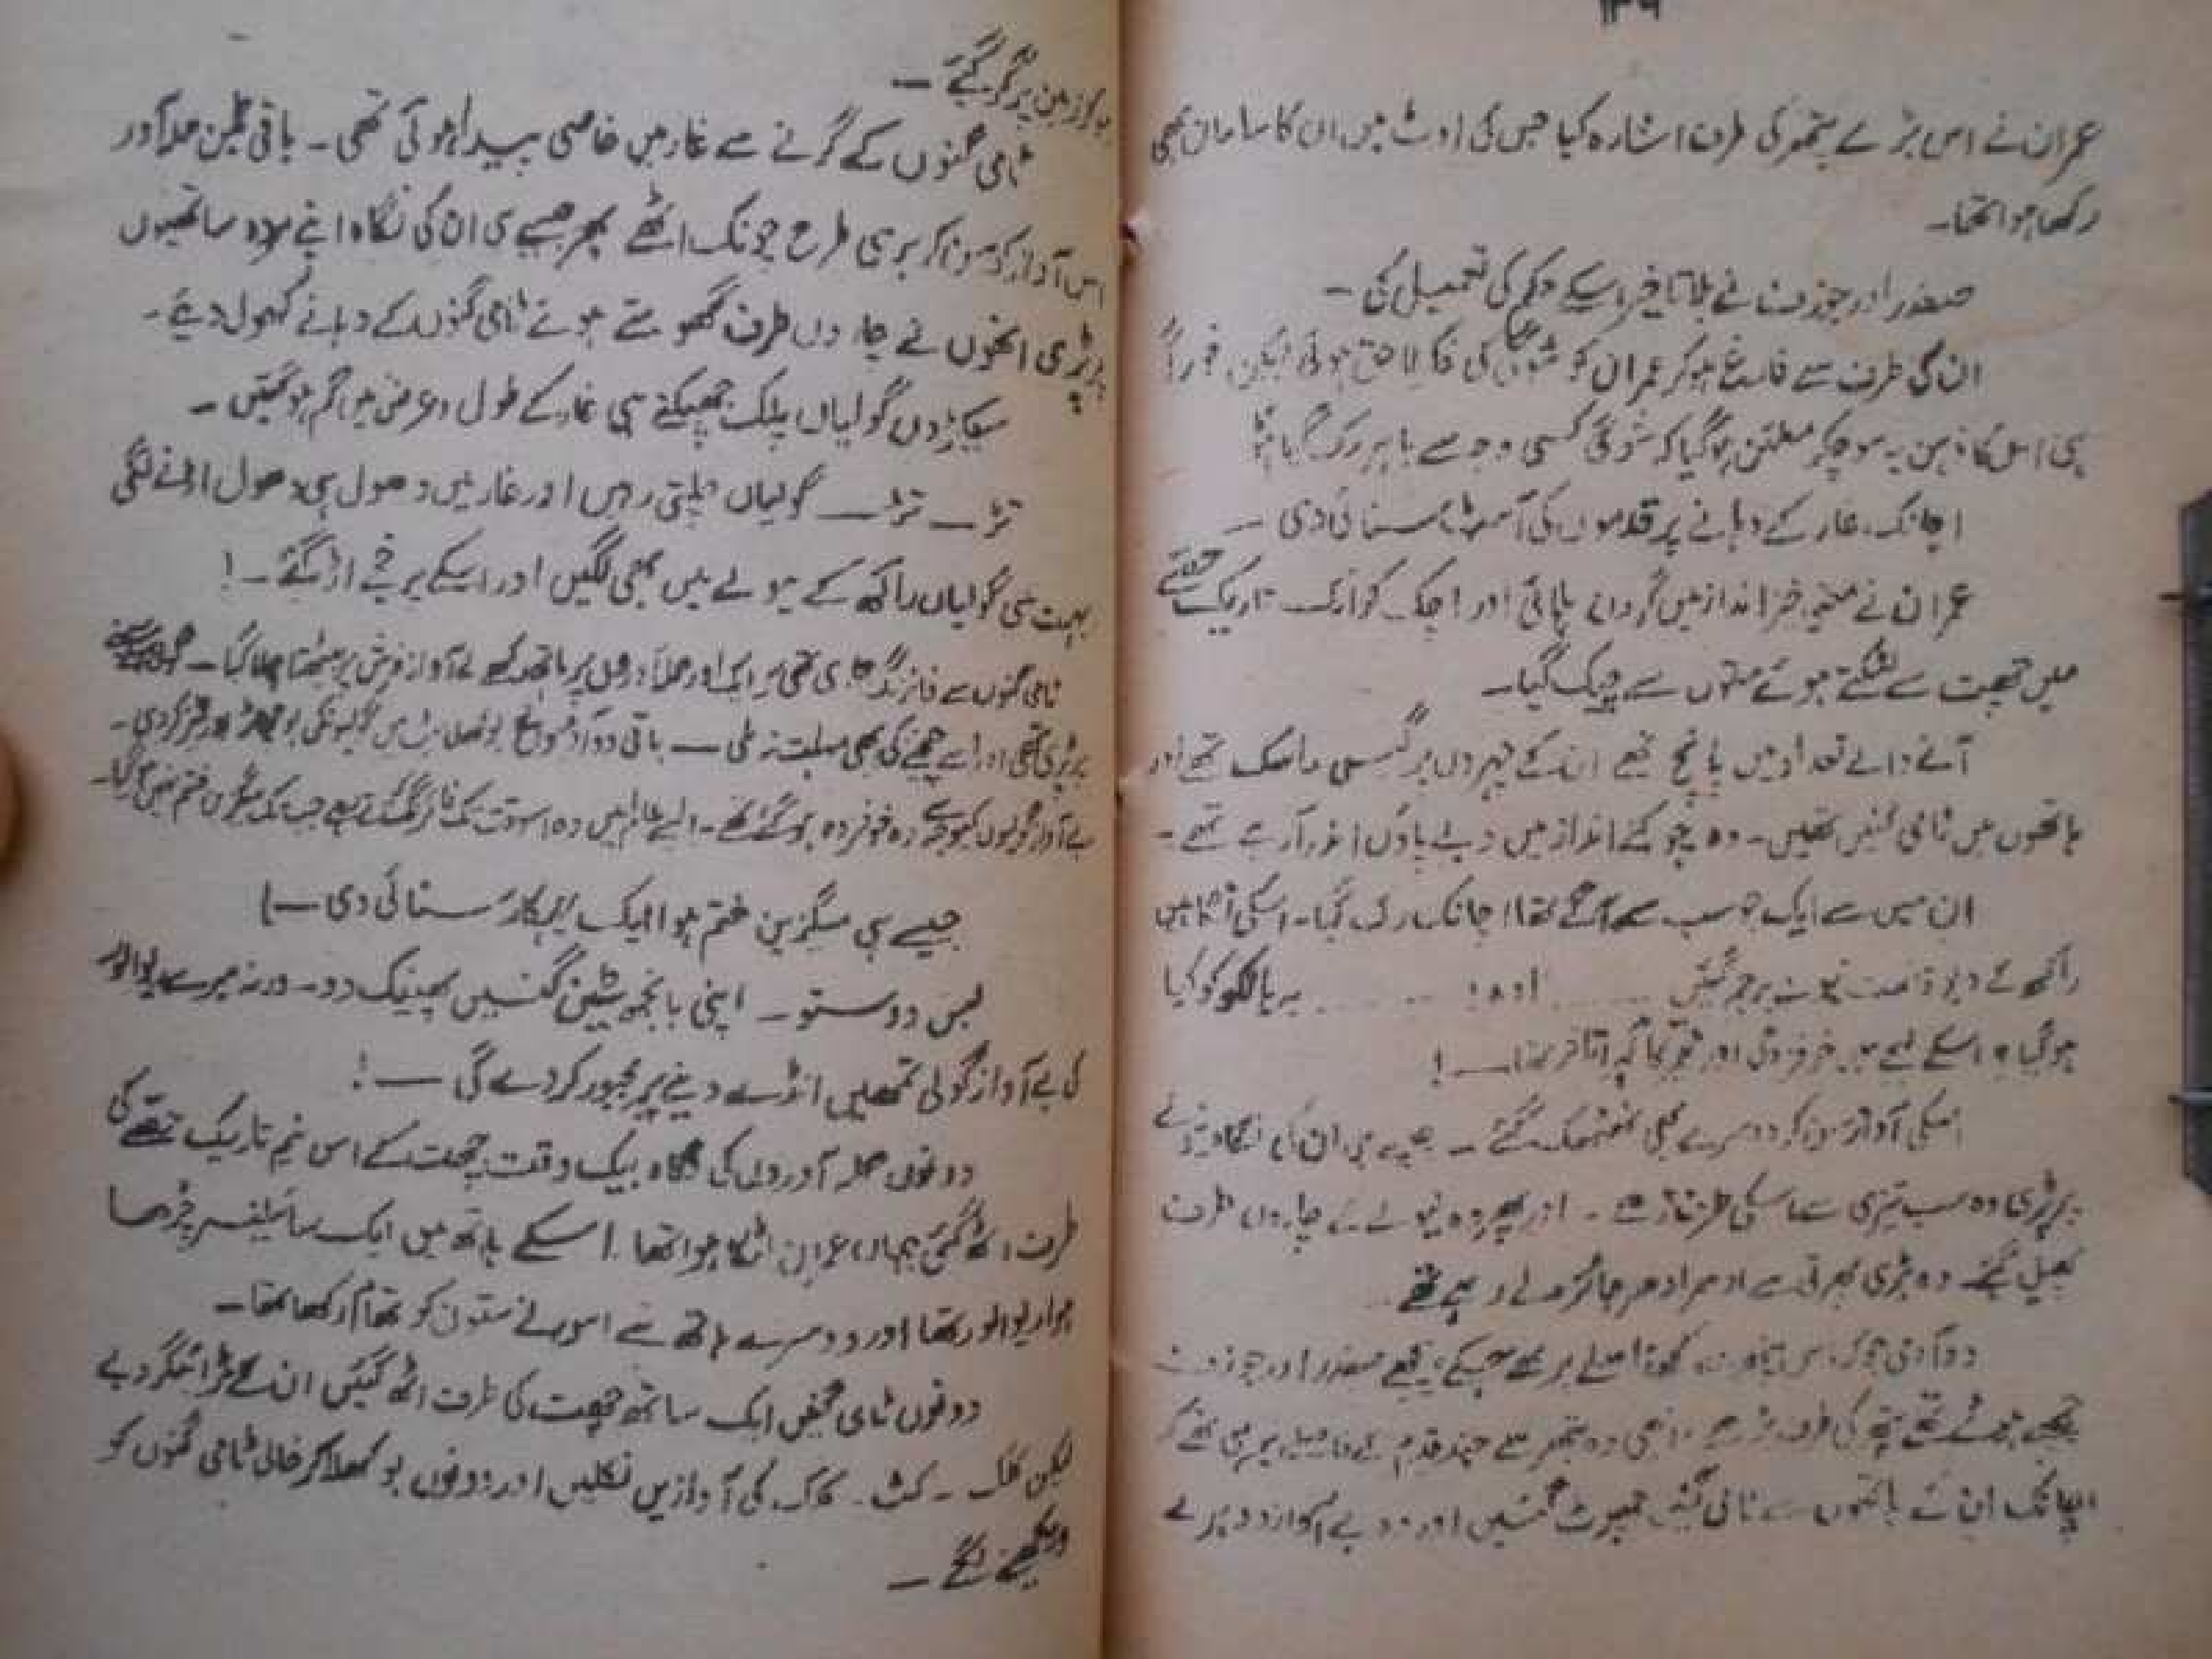 ۱۳۶
عمران نے اس بڑے پتھر کی طرف اشارہ کیا جس کی اوٹ میں ان کا سامان بھی
رکھا ہوا تھا۔
صفدر اور جوزف نے بلا تاخیر اسکے حکم کی تعمیل کی۔
ان کی طرف سے فارغ ہو کر عمران کو کی فکر لاحق ہوئی لیکن فوراً
ہی اس کا ذہن یہ سوچکر مطمئن ہو گیا کہ کسی وجہ سے باہر رک گیا
اچانک غار کے دہانے پر قدموں کی آہٹ سنائی دی —
عمران نے معنی خیز انداز میں گردن ہلائی اور اچک کر تاریک حصے
میں چھت سے لٹکتے ہوئے ستون سے چپک گیا۔
آنے والے تعداد میں پانچ تھے ان کے چہروں پر گیس ماسک تھے اور
ہاتھوں میں ٹامی گنیں تھیں۔ وہ چوکنے انداز میں دبے پاؤں اندر آرہے تھے۔
ان میں سے ایک جو سب سے آگے تھا اچانک رک گیا۔ اسکی نگاہیں
راکھ کے پر جم گئیں ........ اوہ! ........ یہ ہالکو کو کیا
ہو گیا ؟ اسکے لہجے میں خوفزدگی اور تھا —!
اسکی آواز سن کر دوسرے بھی ٹھٹھک گئے ۔ جیسے ہی ان کی نگاہ
پر پڑی وہ سب تیزی سے اسکی طرف ۔ اور پھر وہ چاروں طرف
پھیل گئے۔ وہ بڑی پھرتی سے ادھر ادھر جائزہ لے رہے تھے
دو آدمی جو کے پیچھے صفدر اور جوزف
چھپے ہوئے تھے کی طرف بڑھے ۔ ابھی وہ پتھر سے چند قدم کے فاصلے پر ہی تھے کہ
اچانک ان کے ہاتھوں سے ٹامی گنیں چھوٹ گئیں اور وہ بے آواز دوہرے
ہو کر زمین پر گر گئے —
ٹامی گنوں کے گرنے سے غار میں خاصی پیدا ہوئی تھی ۔ باقی تین حملہ آور
اس آواز کو سن کر بری طرح چونک اٹھے پھر جیسے ہی ان کی نگاہ اپنے مردہ ساتھیوں
پر پڑی انھوں نے چاروں طرف گھومتے ہوئے ٹامی گنوں کے دہانے کھول دیئے۔
سیکڑوں گولیاں پلک جھپکتے ہی غار کے طول و عرض میں گم ہو گئیں ۔
تڑ — تڑ — گولیاں چلتی رہیں اور غار میں دھول ہی دھول اڑنے لگی
بہت سی گولیاں راکھ کے ہولے میں بھی لگیں اور اسکے پرخچے اڑ گئے —!
ٹامی گنوں سے فائرنگ جاری تھی کہ ایک اور حملہ آور دل پر ہاتھ رکھے بے آواز فرش پر بیٹھتا چلا گیا —
پڑی تھی اور اسے چیخنے کی بھی مہلت نہ ملی — باقی دو آدمیوں نے بوکھلاہٹ میں گولیوں کی بوچھاڑ اور تیز کردی۔
بے آواز گولیوں کی وجہ سے وہ خوفزدہ ہو گئے تھے۔ ایسے عالم میں وہ اسوقت تک فائرنگ کرتے رہے جب تک میگزین ختم نہیں ہو گیا۔
جیسے ہی میگزین ختم ہوا ایک للکار سنائی دی —!
بس دوستو — اپنی بانجھ مشین گنیں پھینک دو۔ ورنہ میرے ریوالور
کی بے آواز گولی تمہیں انڈے دینے پر مجبور کر دے گی —!
دونوں حملہ آوروں کی نگاہ بیک وقت چھت کے اس نیم تاریک حصے کی
طرف اٹھ گئی جہاں عمران لٹکا ہوا تھا۔ اسکے ہاتھ میں ایک سائیلنسر چڑھا
ہوا ریوالور تھا اور دوسرے ہاتھ سے اس نے ستون کو تھام رکھا تھا۔
دونوں ٹامی گنیں ایک ساتھ چھت کی طرف اٹھ گئیں ان کے ٹرائیگر دبے
لیکن کٹک ۔ کٹ ۔ کٹک کی آوازیں نکلیں اور دونوں بوکھلا کر خالی ٹامی گنوں کو
دیکھنے لگے —